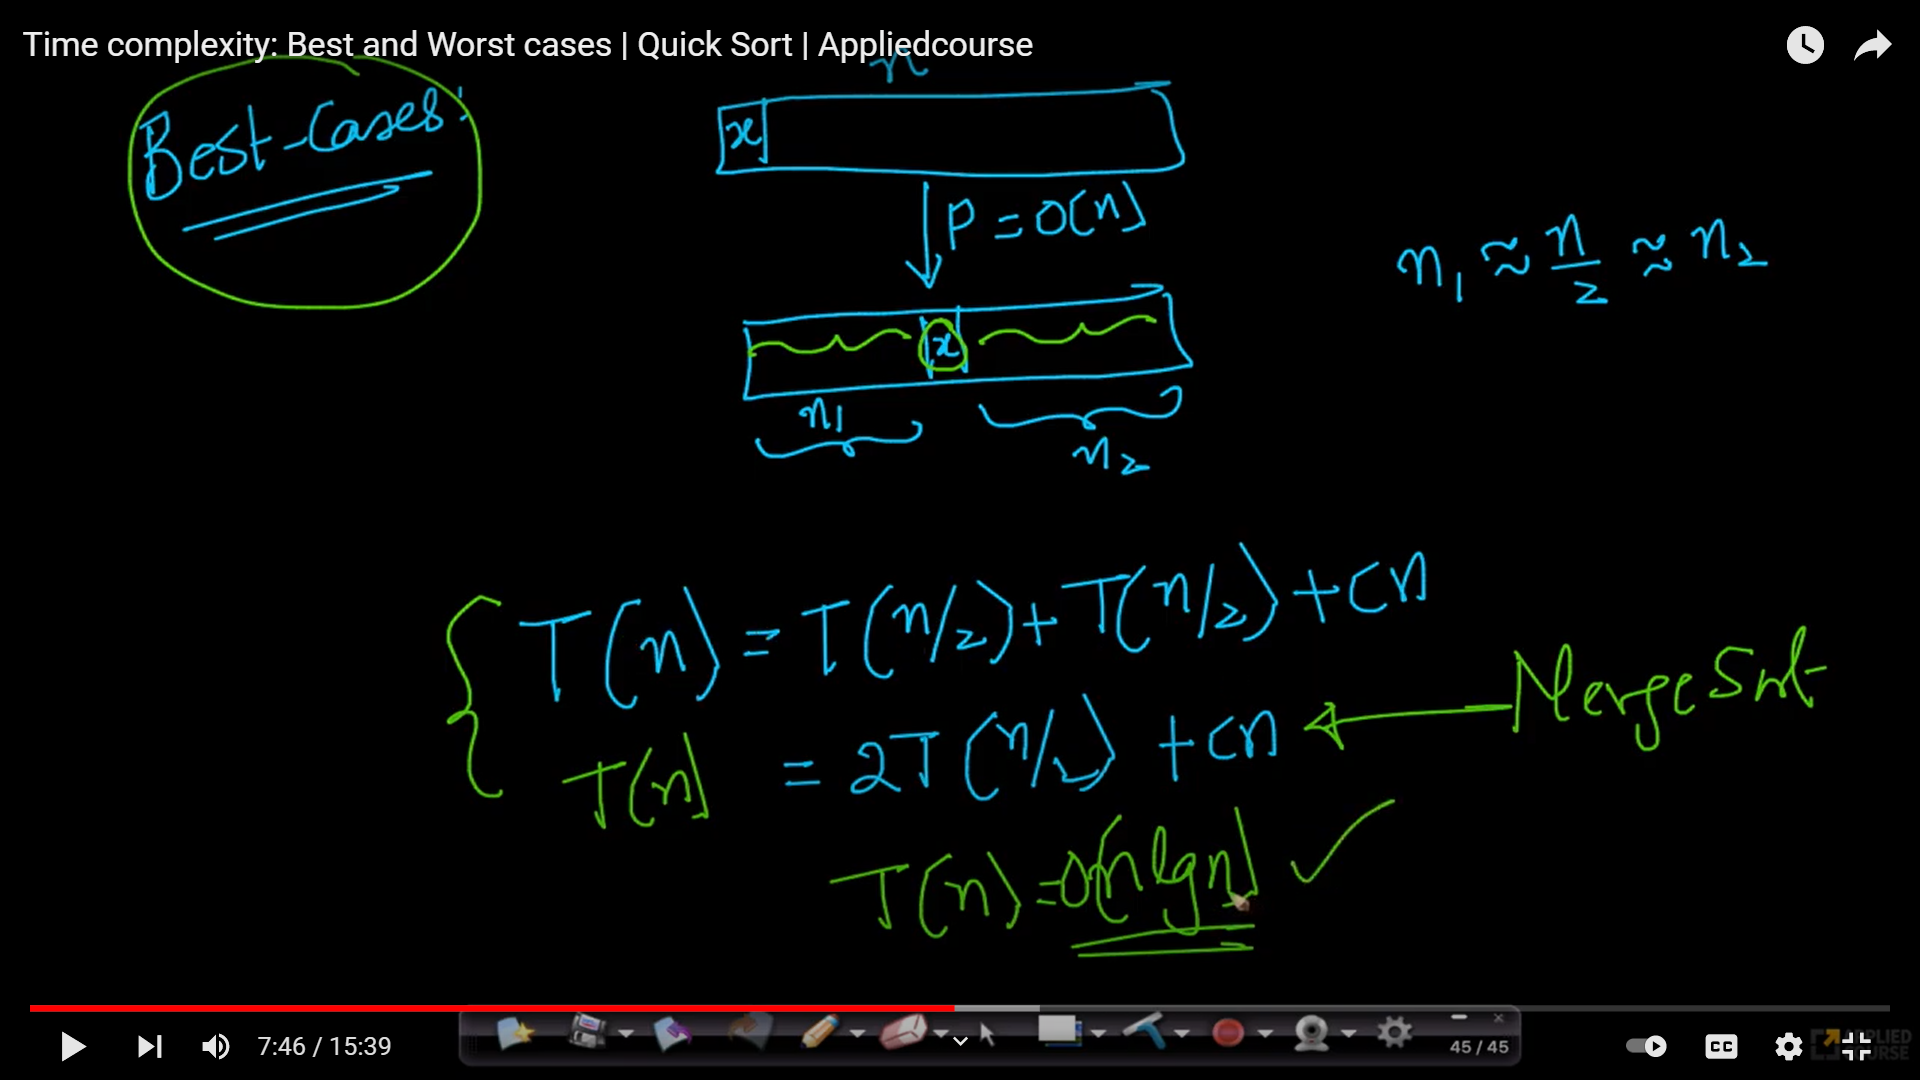 Time complexity: Best and Worst cases | Quick Sort | Appliedcourse
Best-Cases:
n
x
P = O(n)
n₁ ≈ n/2 ≈ n₂
x
n₁
n₂
T(n) = T(n/2) + T(n/2) + cn
T(n) = 2T(n/2) + cn
MergeSort
T(n) = O(n lg n) ✓
7:46 / 15:39
45 / 45
CC
APPLIED
COURSE